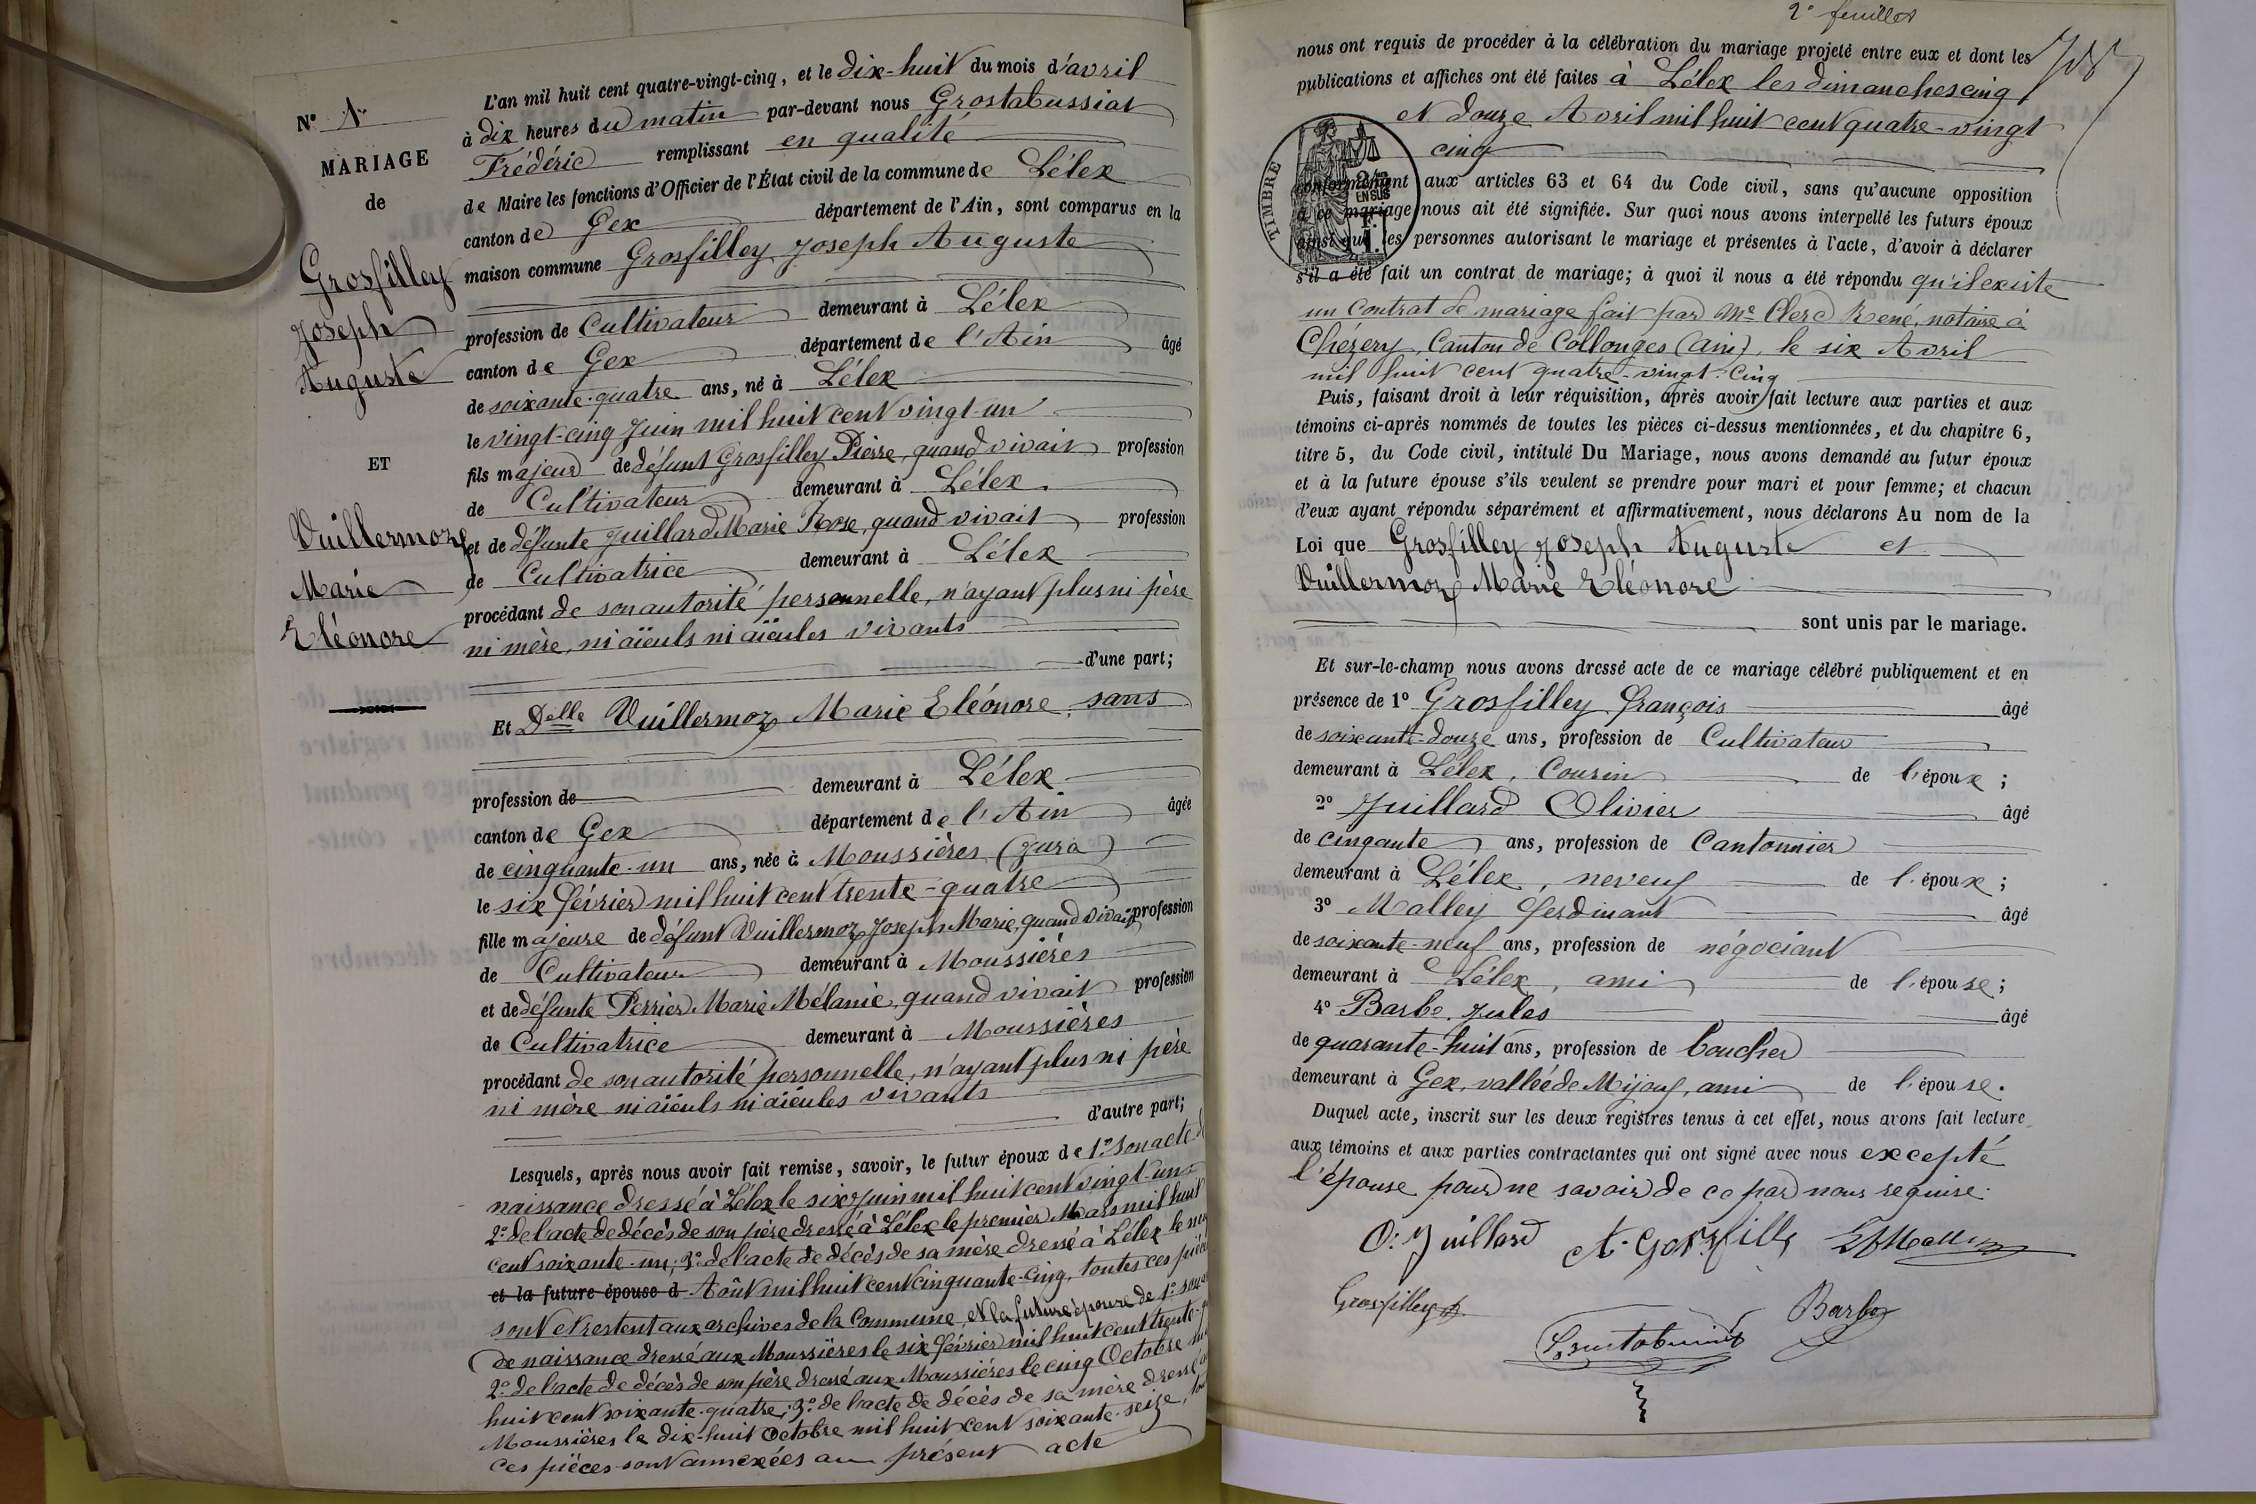 N° 1
MARIAGE
de
Grosfilley
Joseph
Auguste
ET
Vuillermoz
Marie
Eléonore
L'an mil huit cent quatre-vingt-cinq, et le dix-huit du mois d'avril
à dix heures du matin par-devant nous Grostabussiat
Frédéric remplissant en qualité
de Maire les fonctions d'Officier de l'État civil de la commune de Lélex
canton de Gex département de l'Ain, sont comparus en la
maison commune Grosfilley Joseph Auguste
profession de Cultivateur demeurant à Lélex
canton de Gex département de l'Ain âgé
de soixante-quatre ans, né à Lélex
le vingt-cinq Juin mil huit cent vingt-un
fils majeur de défunt Grosfilley Pierre, quand vivait profession
de Cultivateur demeurant à Lélex
et de défunte Juillard Marie Rose, quand vivait profession
de Cultivatrice demeurant à Lélex
procédant de son autorité personnelle, n'ayant plus ni père
ni mère, ni aïeuls ni aïeules vivants
d'une part;
Et Delle Vuillermoz Marie Eléonore, sans
profession de demeurant à Lélex
canton de Gex département de l'Ain âgée
de cinquante-un ans, née à Moussières (Jura)
le six février mil huit cent trente-quatre
fille majeure de défunt Vuillermoz Joseph Marie, quand vivait profession
de Cultivateur demeurant à Moussières
et de défunte Perrier Marie Mélanie, quand vivait profession
de Cultivatrice demeurant à Moussières
procédant de son autorité personnelle, n'ayant plus ni père
ni mère ni aïeuls ni aïeules vivants
d'autre part;
Lesquels, après nous avoir fait remise, savoir, le futur époux de 1° son acte de
naissance dressé à Lélex le six Juin mil huit cent vingt-un
2° de l'acte de décès de son père dressé à Lélex le premier Mars mil huit
cent soixante-un; 3° de l'acte de décès de sa mère dressé à Lélex le
et la future épouse d Août mil huit cent cinquante-cinq, toutes ces pièces
sont et restent aux archives de la Commune, et la future épouse de 1° son
de naissance dressé aux Moussières le six février mil huit cent trente-
2° de l'acte de décès de son père dressé aux Moussières le cinq Octobre mil
huit cent soixante-quatre; 3° de l'acte de décès de sa mère dressé
Moussières le dix-huit Octobre mil huit cent soixante-seize,
ces pièces sont annexées au présent acte
2e feuillet
nous ont requis de procéder à la célébration du mariage projeté entre eux et dont les
publications et affiches ont été faites à Lélex les dimanches cinq
et douze Avril mil huit cent quatre-vingt
cinq
TIMBRE
EN SUS
conformément aux articles 63 et 64 du Code civil, sans qu'aucune opposition
à ce mariage nous ait été signifiée. Sur quoi nous avons interpellé les futurs époux
ainsi que les personnes autorisant le mariage et présentes à l'acte, d'avoir à déclarer
s'il a été fait un contrat de mariage; à quoi il nous a été répondu qu'il existe
un contrat de mariage fait par Me Clerc René, notaire à
Chézery, Canton de Collonges (Ain), le six Avril
mil huit cent quatre-vingt-cinq
Puis, faisant droit à leur réquisition, après avoir fait lecture aux parties et aux
témoins ci-après nommés de toutes les pièces ci-dessus mentionnées, et du chapitre 6,
titre 5, du Code civil, intitulé Du Mariage, nous avons demandé au futur époux
et à la future épouse s'ils veulent se prendre pour mari et pour femme; et chacun
d'eux ayant répondu séparément et affirmativement, nous déclarons Au nom de la
Loi que Grosfilley Joseph Auguste et
Vuillermoz Marie Eléonore
sont unis par le mariage.
Et sur-le-champ nous avons dressé acte de ce mariage célébré publiquement et en
présence de 1° Grosfilley François âgé
de soixante-douze ans, profession de Cultivateur
demeurant à Lélex, Cousin de l'époux;
2° Juillard Olivier âgé
de cinqante ans, profession de Cantonnier
demeurant à Lélex, neveu de l'époux;
3° Malley Ferdinant âgé
de soixante-neuf ans, profession de négociant
demeurant à Lélex, ami de l'épouse;
4° Barbe Jules âgé
de quarante-huit ans, profession de boucher
demeurant à Gex, vallée de Mijoux, ami de l'épouse.
Duquel acte, inscrit sur les deux registres tenus à cet effet, nous avons fait lecture
aux témoins et aux parties contractantes qui ont signé avec nous excepté
l'épouse pour ne savoir de ce par nous requise.
O. Juillard A. Gorsfilly
Grosfilley Barbe